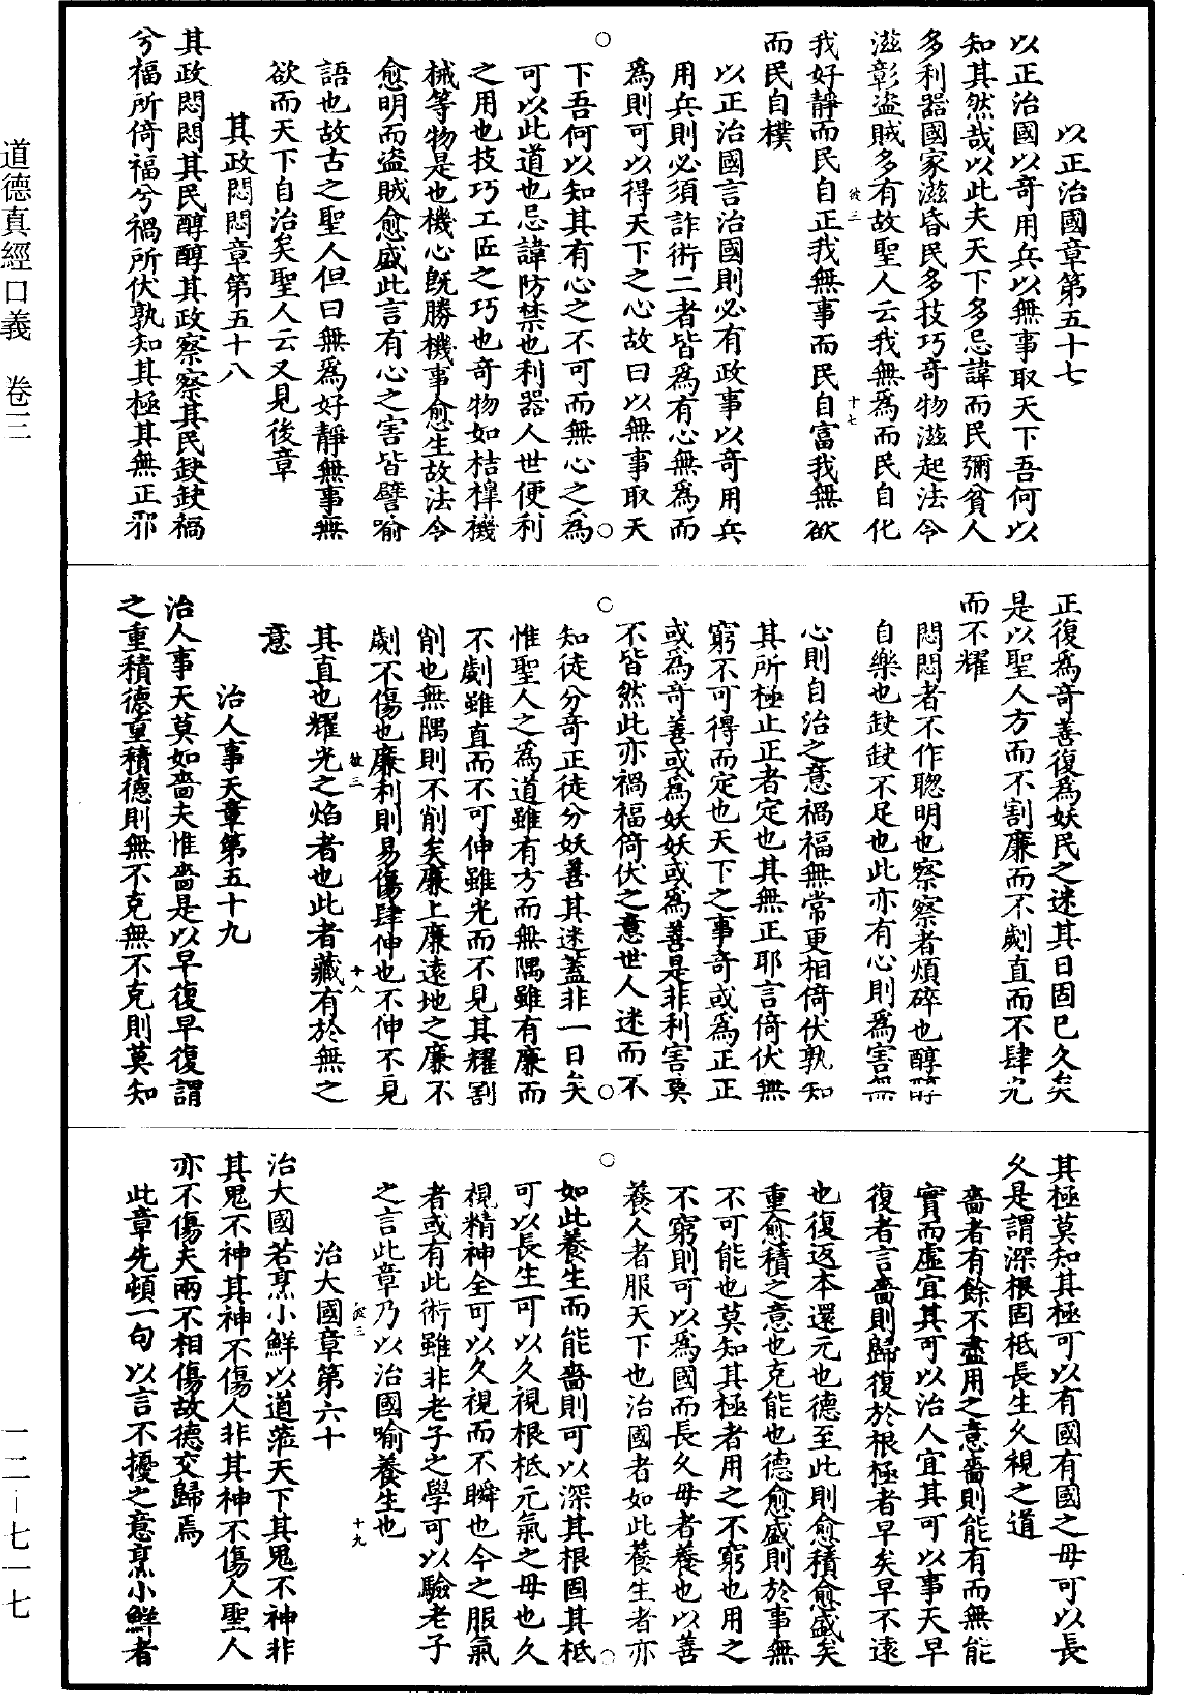 道德真經口義　卷三
一二—七一七
以正治國章第五十七
以正治國以奇用兵以無事取天下吾何以
知其然哉以此夫天下多忌諱而民彌貧人
多利器國家滋昏民多技巧奇物滋起法令
滋彰盜賊多有故聖人云我無為而民自化
彼三　十七
我好靜而民自正我無事而民自富我無欲
而民自樸
以正治國言治國則必有政事以奇用兵
用兵則必須詐術二者皆為有心無為而
為則可以得天下之心故曰以無事取天
下吾何以知其有心之不可而無心之為
可以此道也忌諱防禁也利器人世便利
之用也技巧工匠之巧也奇物如桔槹機
械等物是也機心既勝機事愈生故法令
愈明而盜賊愈盛此言有心之害皆譬喻
語也故古之聖人但曰無為好靜無事無
欲而天下自治矣聖人云又見後章
其政悶悶章第五十八
其政悶悶其民醇醇其政察察其民缺缺禍
兮福所倚福兮禍所伏孰知其極其無正邪
正復為奇善復為妖民之迷其日固已久矣
是以聖人方而不割廉而不劌直而不肆光
而不耀
悶悶者不作聰明也察察者煩碎也醇醇
自樂也缺缺不足也此亦有心則為害無
心則自治之意禍福無常更相倚伏孰知
其所極止正者定也其無正耶言倚伏無
窮不可得而定也天下之事奇或為正正
或為奇善或為妖妖或為善是非利害莫
不皆然此亦禍福倚伏之意世人迷而不
知徒分奇正徒分妖善其迷蓋非一日矣
惟聖人之為道雖有方而無隅雖有廉而
不劌雖直而不可伸雖光而不見其耀割
削也無隅則不削矣廉上廉遠地之廉不
劌不傷也廉利則易傷肆伸也不伸不見
彼三　十八
其直也耀光之焰者也此者藏有於無之
意
治人事天章第五十九
治人事天莫如嗇夫惟嗇是以早復早復謂
之重積德重積德則無不克無不克則莫知
其極莫知其極可以有國有國之母可以長
久是謂深根固柢長生久視之道
嗇者有餘不盡用之意嗇則能有而無能
實而虛宜其可以治人宜其可以事天早
復者言嗇則歸復於根極者早矣早不遠
也復返本還元也德至此則愈積愈盛矣
重愈積之意也克能也德愈盛則於事無
不可能也莫知其極者用之不窮也用之
不窮則可以為國而長久母者養也以善
養人者服天下也治國者如此養生者亦
如此養生而能嗇則可以深其根固其柢
可以長生可以久視根柢元氣之母也久
視精神全可以久視而不瞬也今之服氣
者或有此術雖非老子之學可以驗老子
之言此章乃以治國喻養生也
彼三　十九
治大國章第六十
治大國若烹小鮮以道蒞天下其鬼不神非
其鬼不神其神不傷人非其神不傷人聖人
亦不傷夫兩不相傷故德交歸焉
此章先頓一句以言不擾之意烹小鮮者